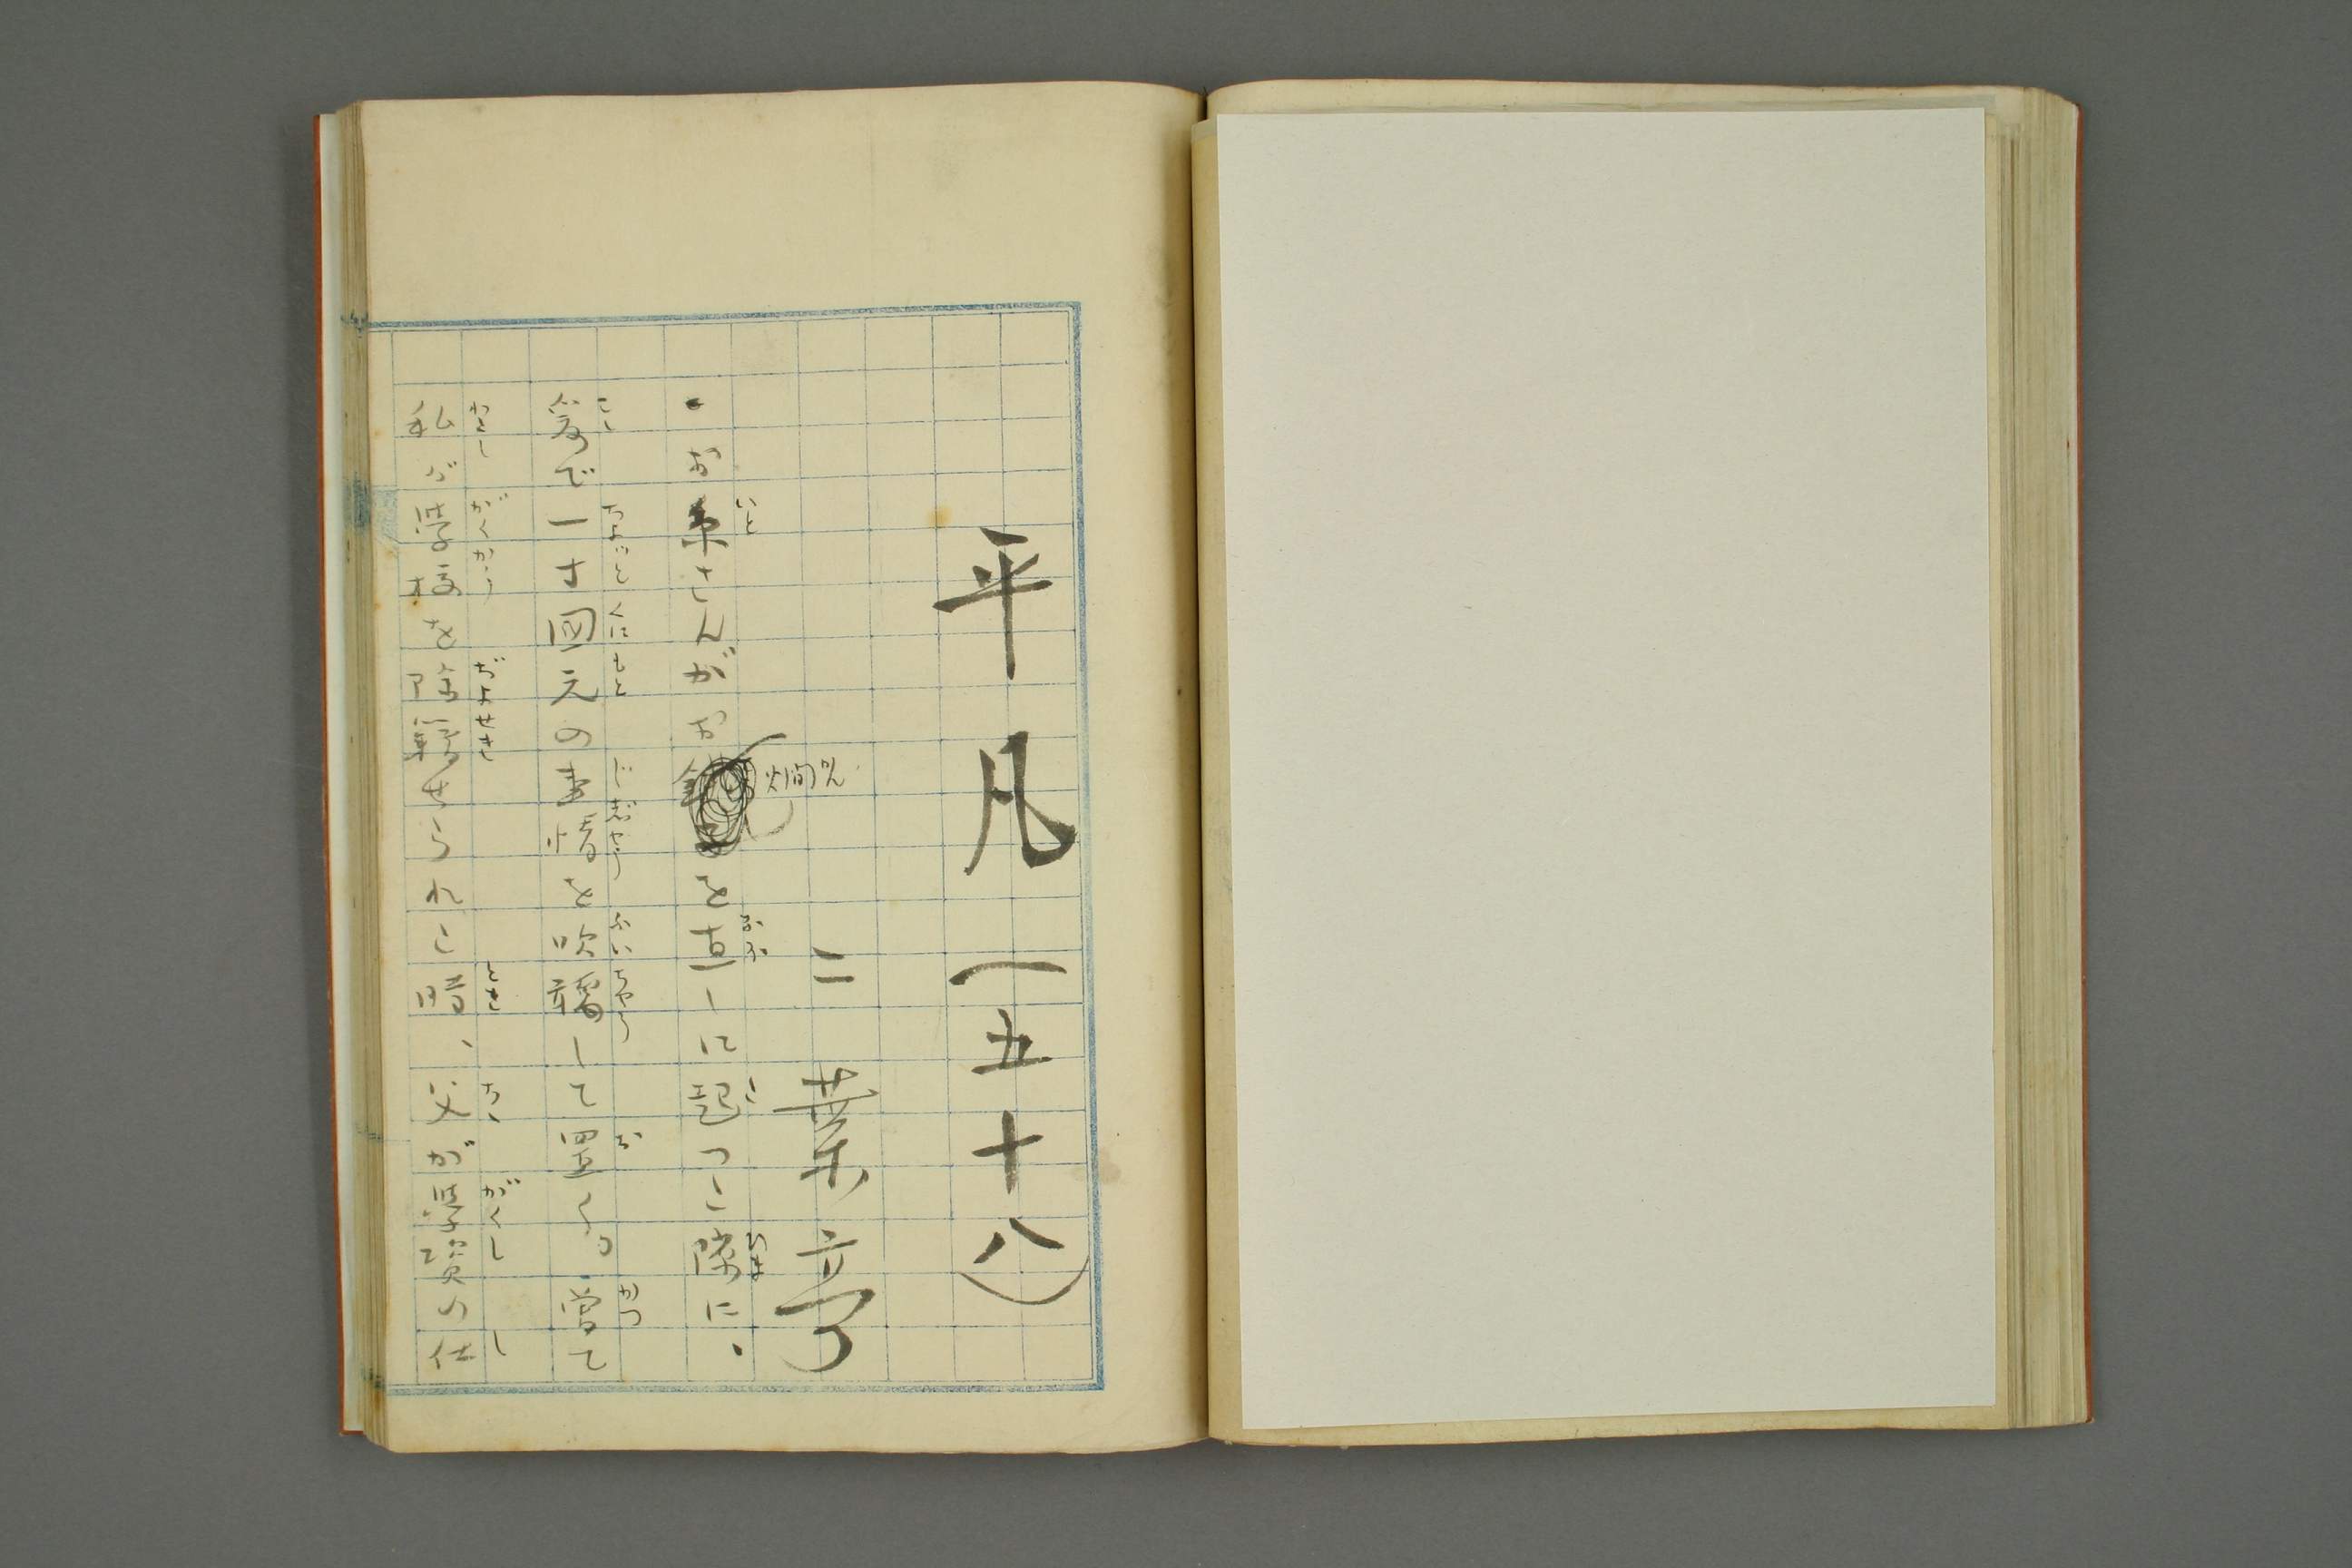 平凡（五十八）
二葉亭
・お糸さんがお燗を直しに起つた隙に、
爰で一寸國元の事情を吹聽して置く。甞て
私が學校を除籍せられた時、父が學資の仕